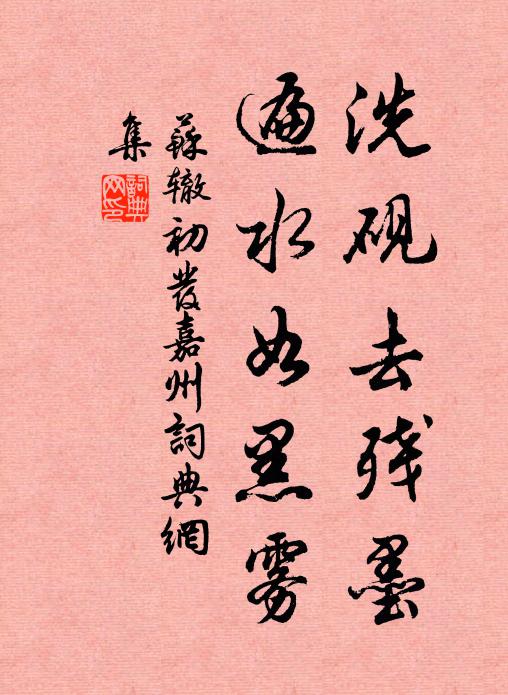 洗砚去残墨
遍水如黑雾
蘇辙初发嘉州詞典網
集
詞典网印